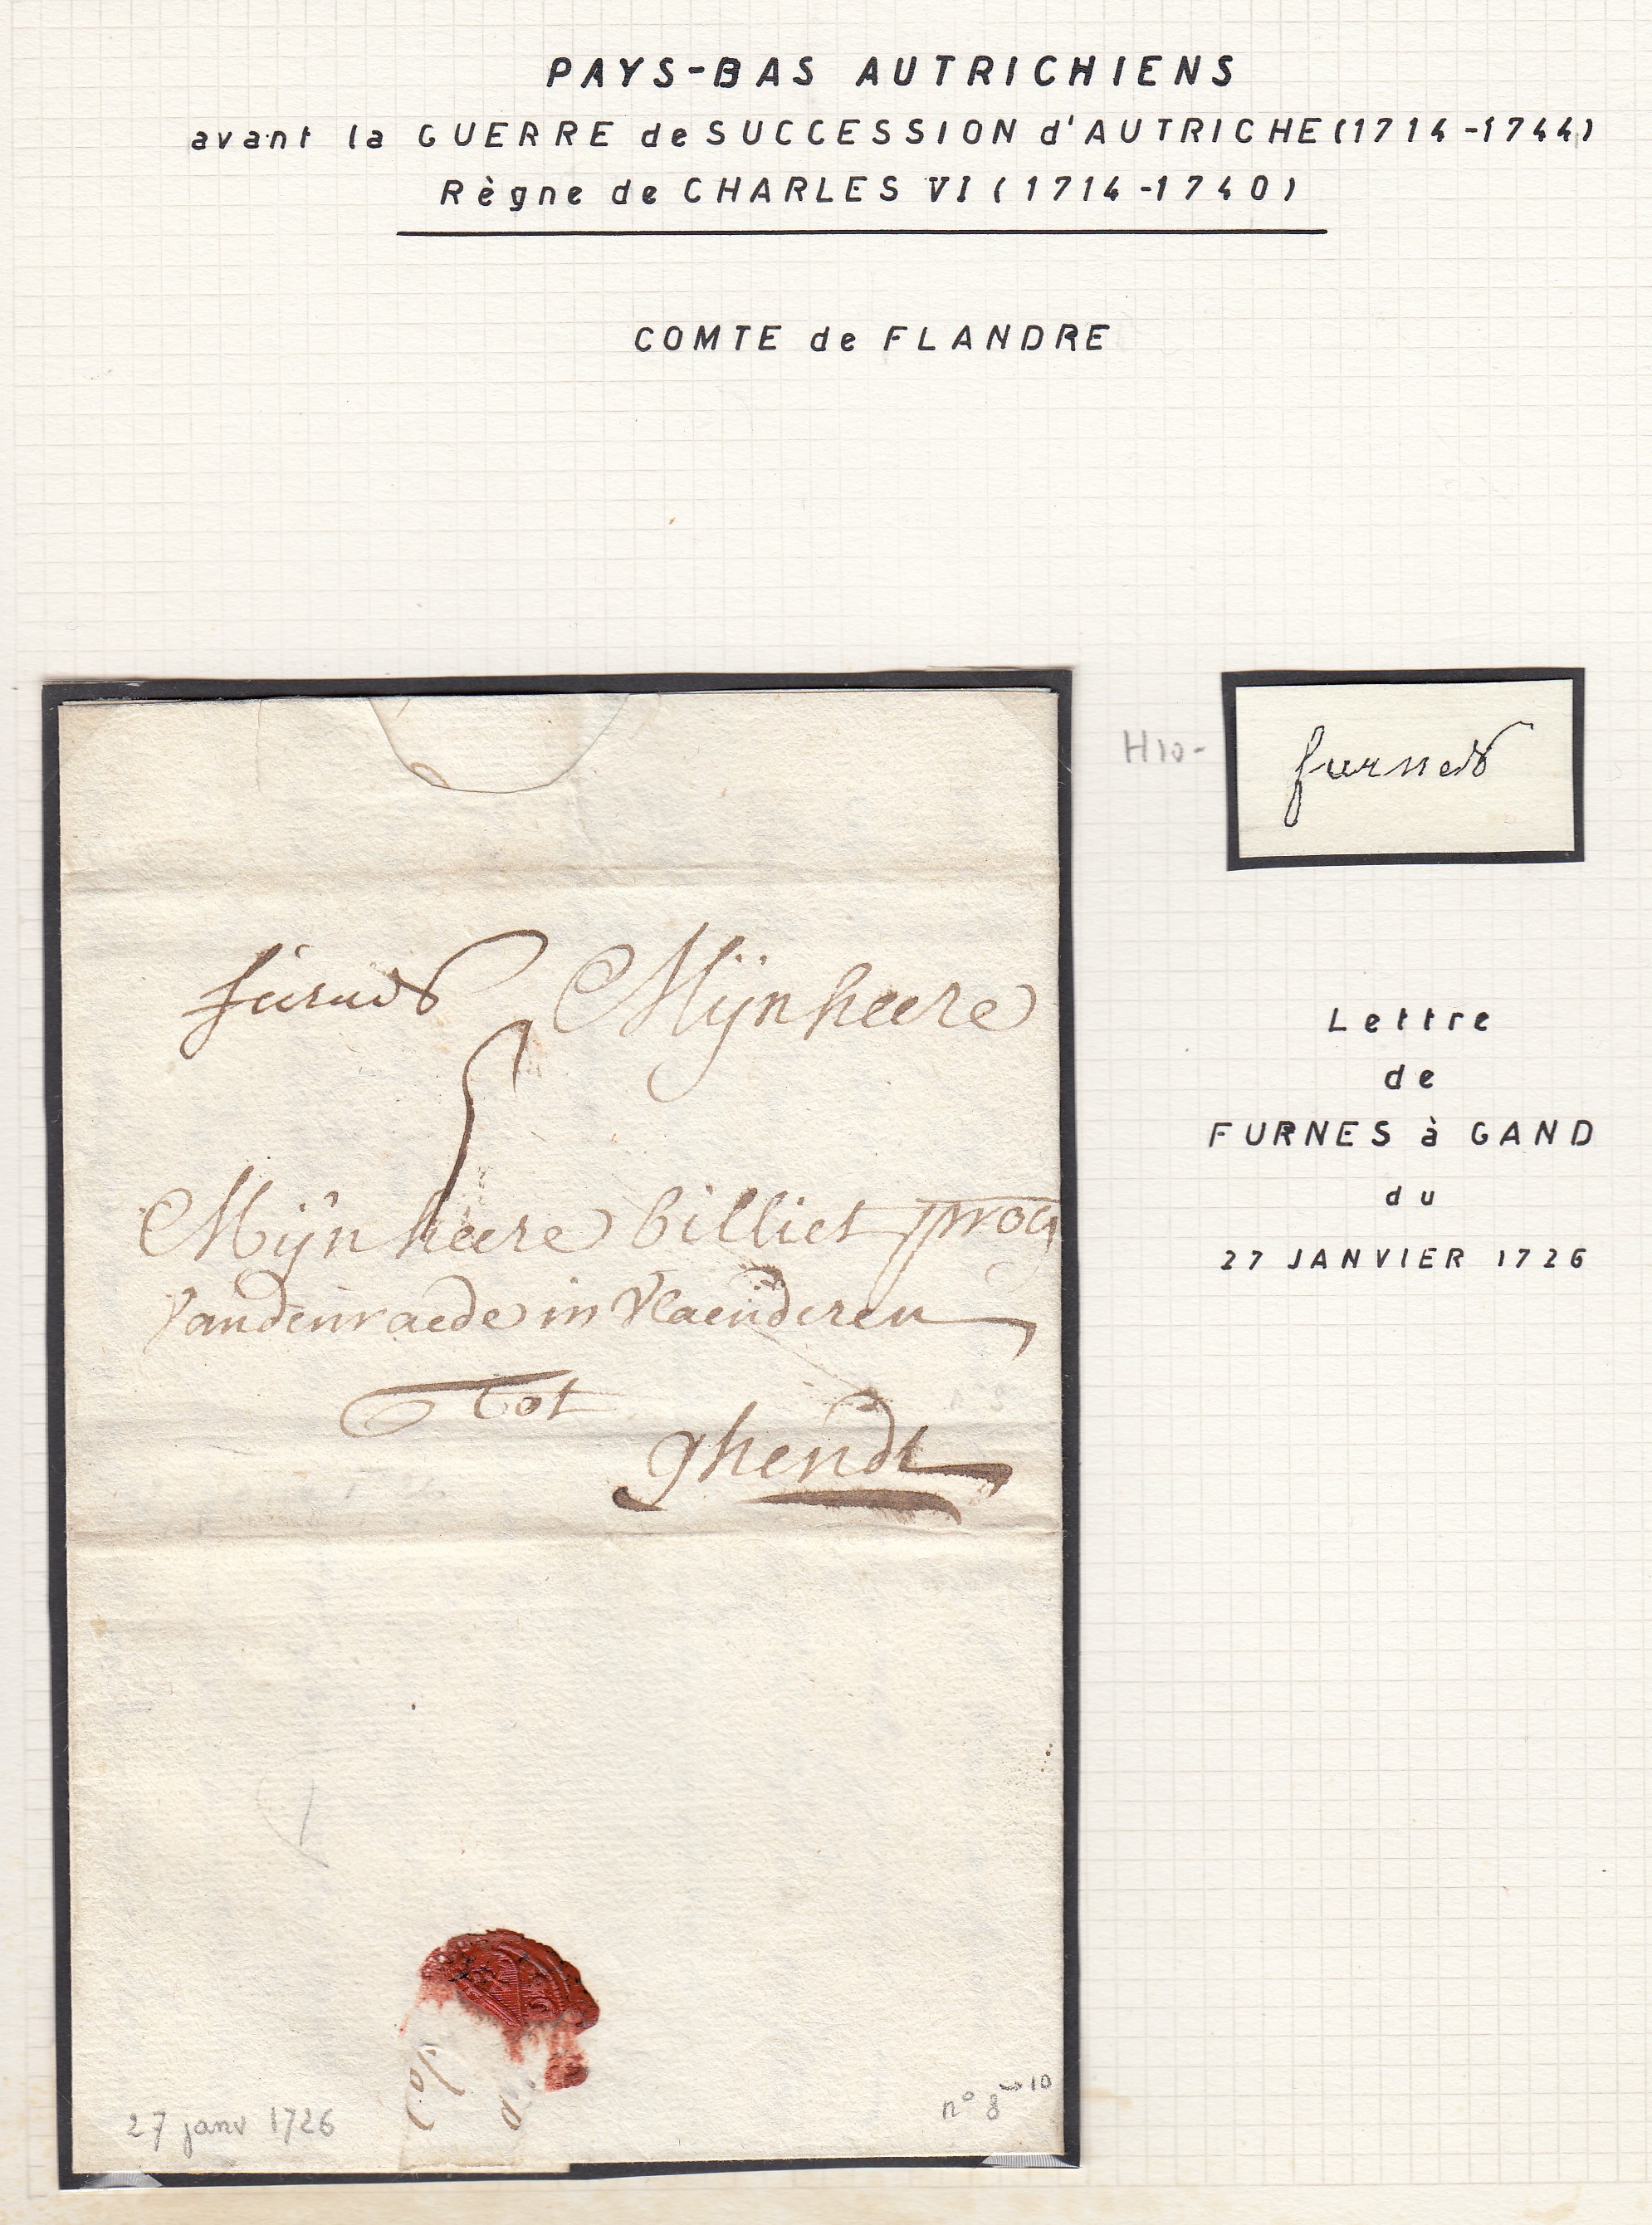 PAYS-BAS AUTRICHIENS
avant la GUERRE de SUCCESSION d'AUTRICHE (1714-1744)
Règne de CHARLES VI (1714-1740)
COMTE de FLANDRE
H10-
furnes
Lettre
de
FURNES à GAND
du
27 JANVIER 1726
furnes Mijnheere
5
Mijnheere billiet proc
vanden raede in Vlaenderen
Tot
ghendt
27 janv 1726
n° 8 10